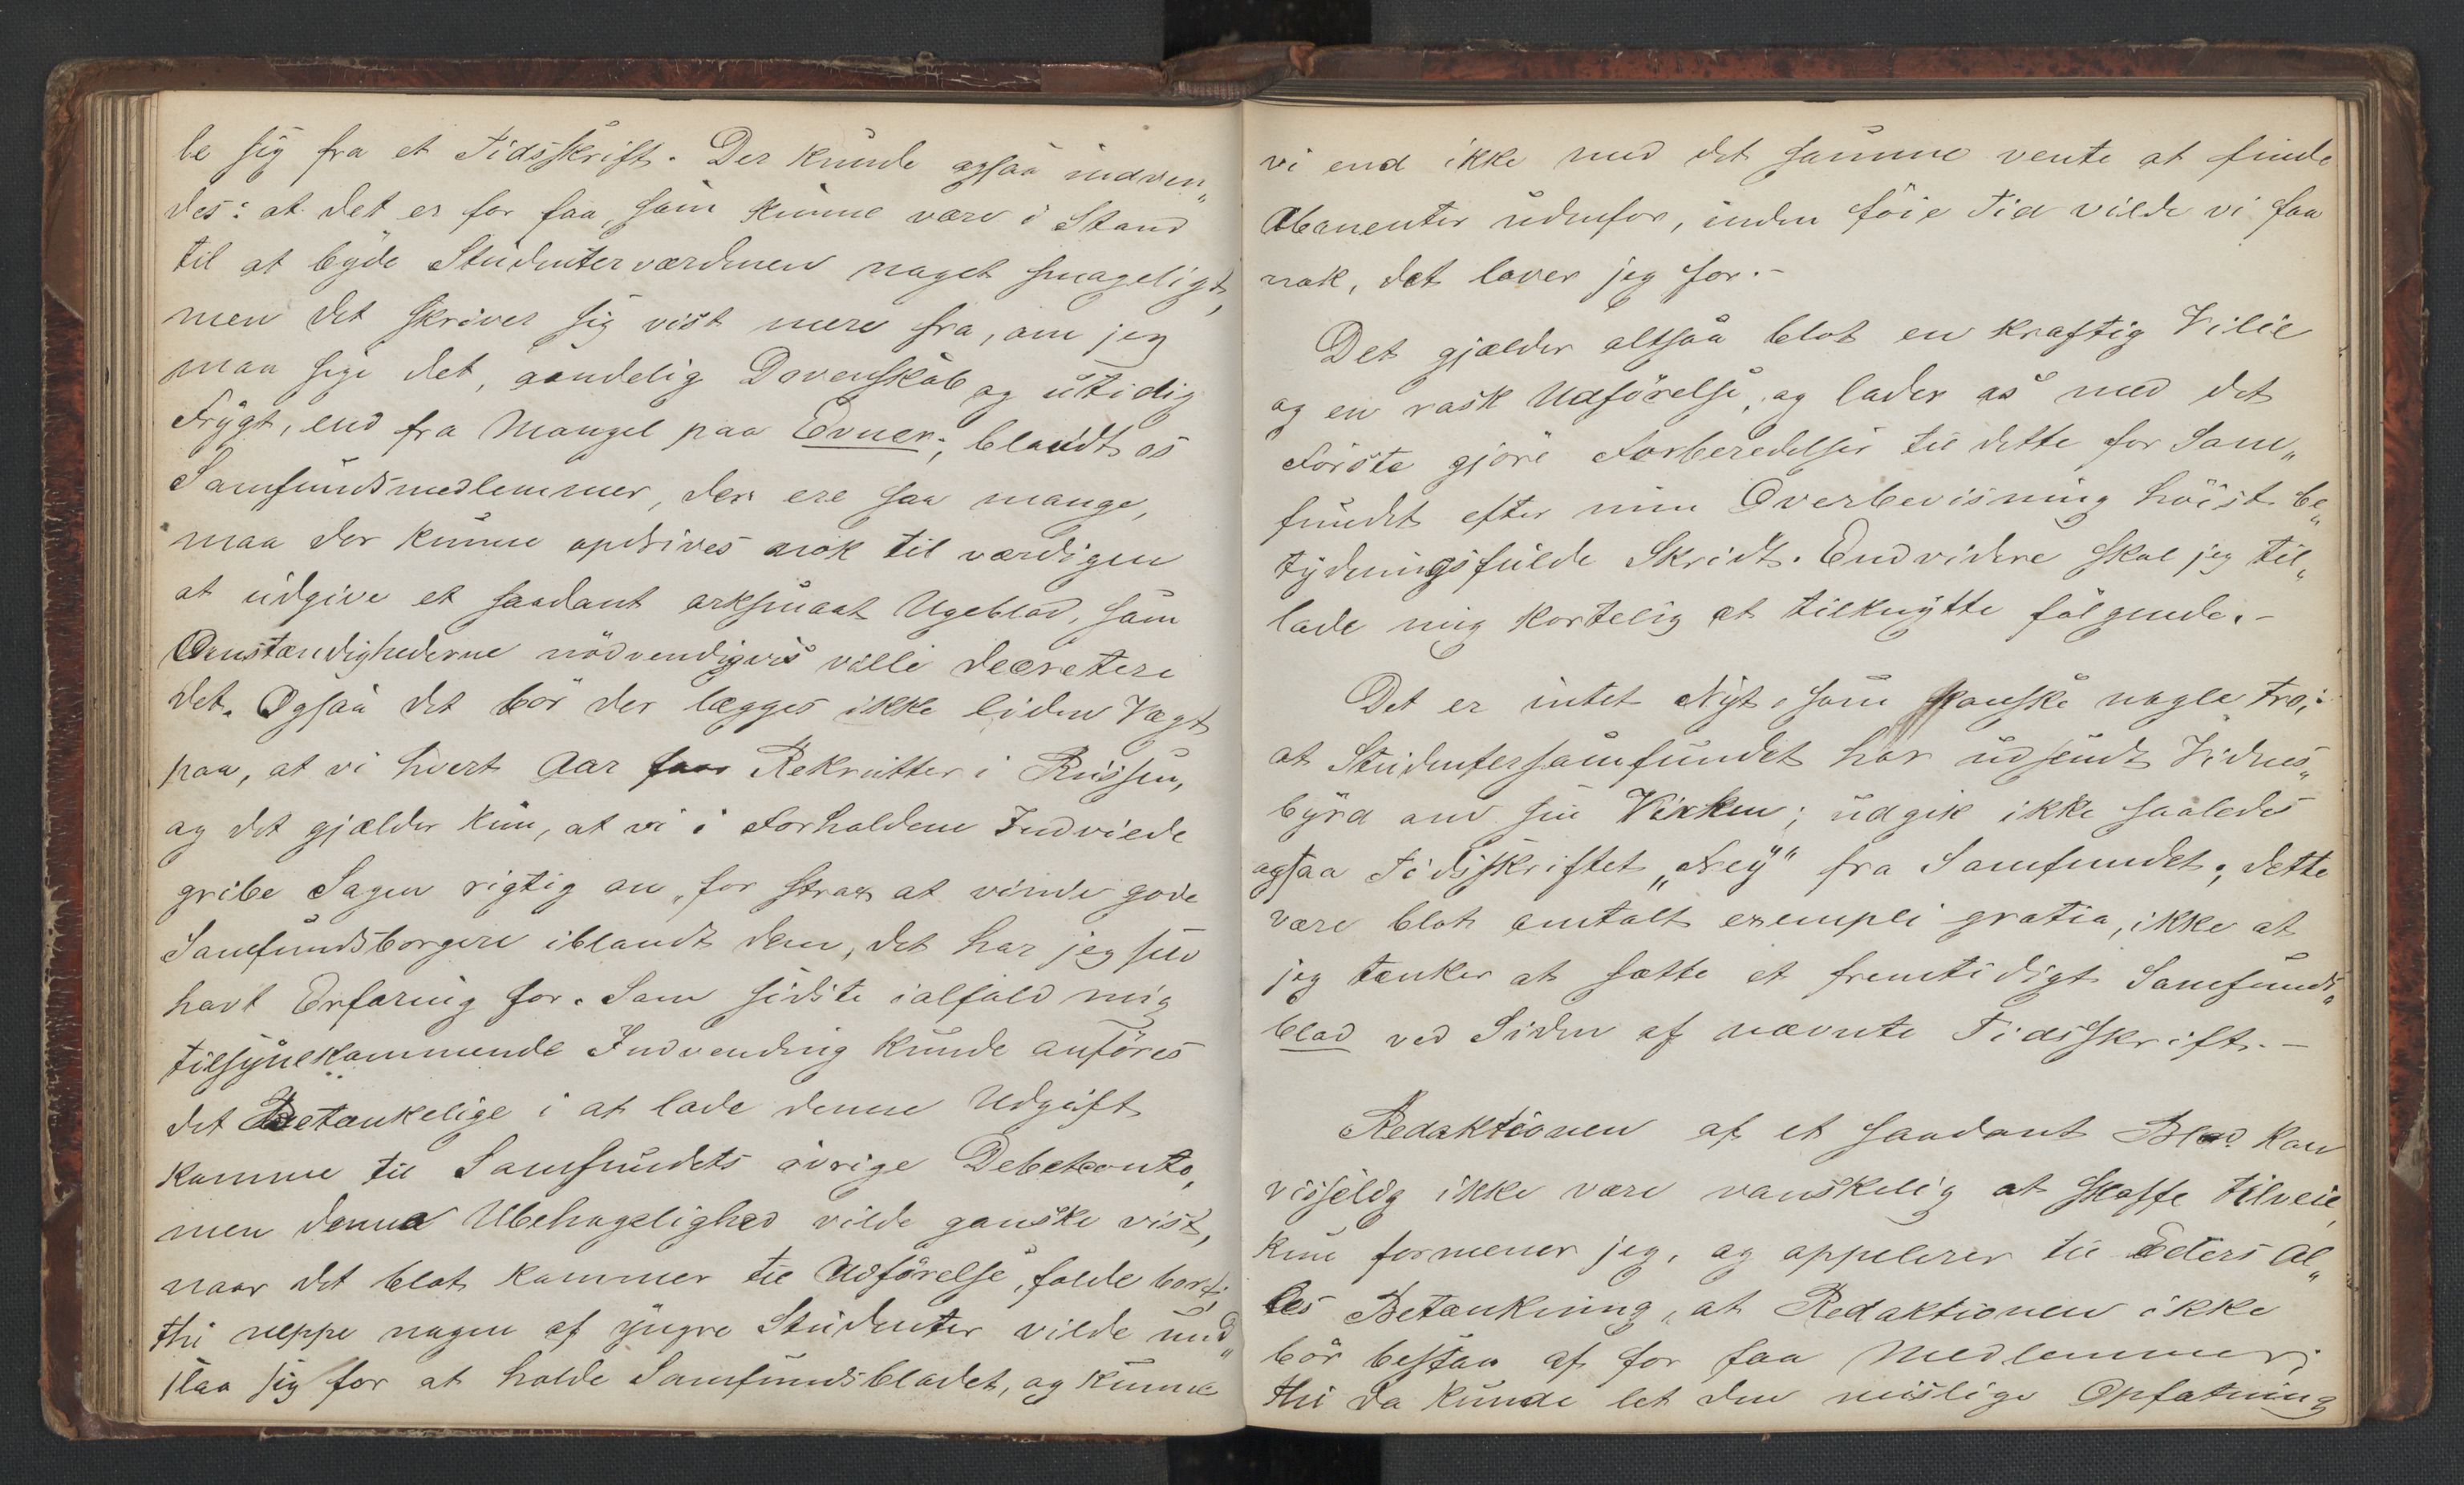 le sig fra et Tidsskrift. Der kunde ogsaa indven„
des: at det er for faa, som kunne være i Stand
til at byde Studenterverdenen noget smageligt,
men det skriver sig vist mere fra, om jeg
maa sige det, aandelig Dovenskab og utidig
Frygt, end fra Mangel paa Evner; blandt os
Samfundsmedlemmer, der ere saa mange,
maa der kunne opdrives nok til værdigen
at udgive et saadant arksmaat Ugeblad, som
Omstændighederne nödvendigvis ville decretere
det. Ogsaa det bör der lægges ikke liden Vægt
paa, at vi hvert Aar faar Rekrutter i Russen,
og det gjælder kun, at vi i Forholdene Indviede
gribe Sagen rigtig an, for strax at vinde gode
Samfundsborgere iblandt dem, det har jeg selv
havt Erfaring for. Som sidste ialfald mig
tilsynekommende Indvending kunde anföres
det Betænkelige i at lade denne Udgift
komme til Samfundets övrige Debetconto,
men denne Ubehagelighed vilde ganske vist,
naar det blot kommer til Udförelse, falde bort;
thi neppe nogen af yngre Studenter vilde und„
slaa sig for at holde Samfundsbladet, og kunne
vi end ikke med det samme vente at finde
Abonenter udenfor, inden föie Tid vilde vi faa
nok, det lover jeg for.-
Det gjælder altsaa blot en kraftig Vilie
og en rask Udförelse, og lader os med det
Förste gjöre Forberedelser til dette for Sam„
fundet efter min Overbevisning höist be„
tydningsfulde Skridt. Endvidere skal jeg til„
lade mig kortelig at tilknytte fölgende.-
Det er intet Nyt, som kanske nogle tro,:
at Studentersamfundet har udsendt Vidnes„
byrd om sin Virken; udgik ikke saaledes
ogsaa Tidsskriftet „Ney“ fra Samfundet; dette
være blot omtalt exempli gratia, ikke at
jeg tænker at sætte et fremtidigt Samfunds„
blad ved Siden af nævnte Tidsskrift.-
Redaktionen af et saadant Blad kan
visselig ikke være vanskelig at skaffe tilveie,
kun formener jeg, og appelerer til Eders Al„
les Betænkning, at Redaktionen ikke
bör bestaa af for faa Medlemmer;
thi da kunde let den mislige Opfatning